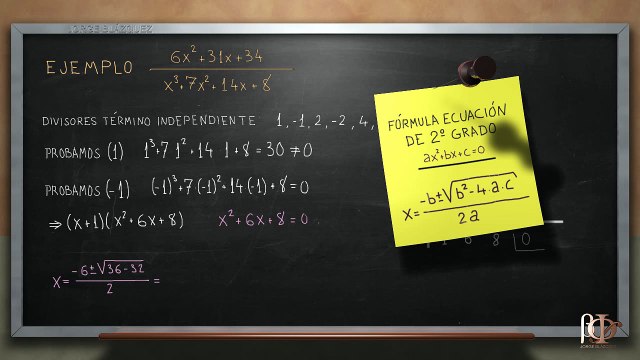 JORGE BLÁZQUEZ
EJEMPLO (6x²+31x+34)/(x³+7x²+14x+8)
DIVISORES TÉRMINO INDEPENDIENTE 1, -1, 2, -2, 4,
PROBAMOS (1) 1³+7 1²+14 1+8=30≠0
PROBAMOS (-1) (-1)³+7(-1)²+14(-1)+8=0
⇒(x+1)(x²+6x+8) x²+6x+8=0
x=(-6±√(36-32))/2=
FÓRMULA ECUACIÓN
DE 2º GRADO
ax²+bx+c=0
x=(-b±√(b²-4·a·c))/2a
1 6 8 0
JORGE BLÁZQUEZ